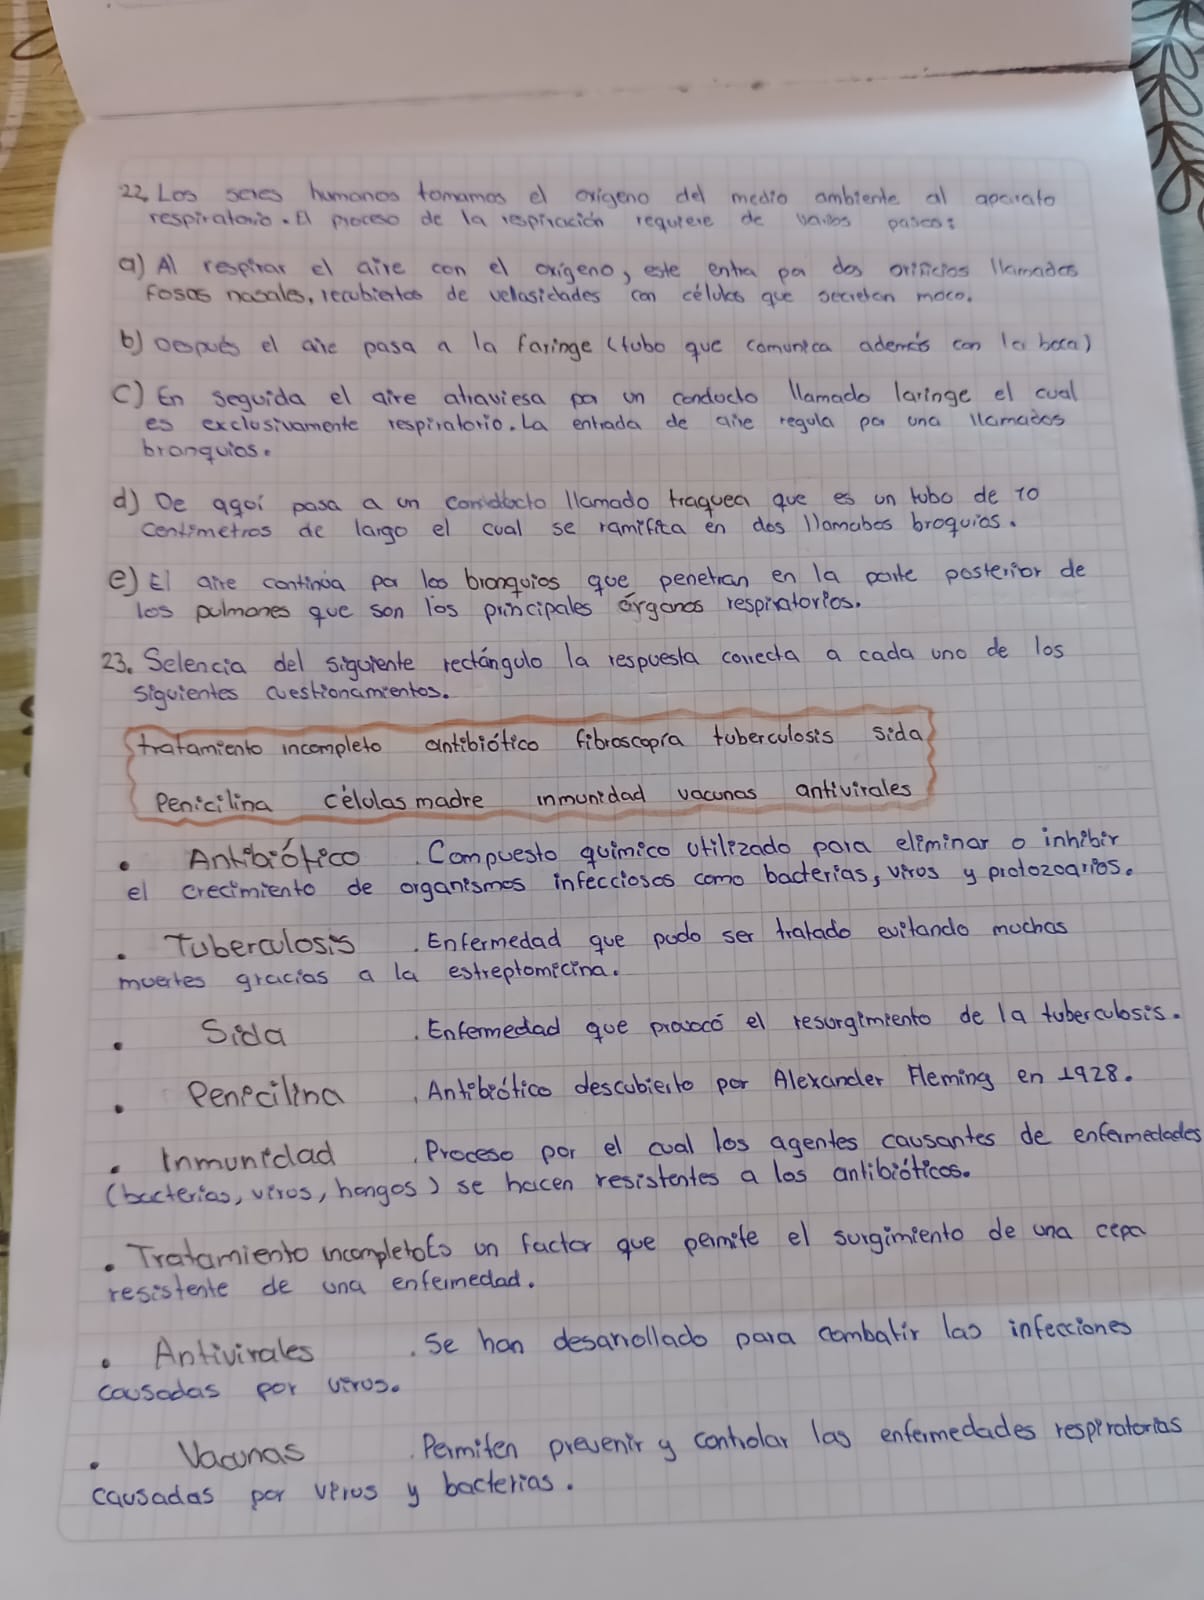 22. Los seres humanos tomamos el oxígeno del medio ambiente al aparato
respiratorio. El proceso de la respiración requiere de varios pasos:
a) Al respirar el aire con el oxígeno, este entra por dos orificios llamados
fosas nasales, recubiertas de velasidades con células que secretan moco.
b) Después el aire pasa a la faringe (tubo que comunica además con la boca)
c) En seguida el aire atraviesa por un conducto llamado laringe el cual
es exclusivamente respiratorio. La entrada de aire regula por una llamados
bronquios.
d) De aqui pasa a un conducto llamado traquea que es un tubo de 10
centimetros de largo el cual se ramifica en dos llamabos broquios.
e) El aire continúa por los bronquios que penetran en la parte posterior de
los pulmones que son los principales órganos respiratorios.
23. Selencia del siguiente rectángulo la respuesta correcta a cada uno de los
siguientes cuestionamientos.
tratamiento incompleto antibiótico fibroscopía tuberculosis sida
Penicilina células madre inmunidad vacunas antivirales
• Antibiótico . Compuesto químico utilizado para eliminar o inhibir
el crecimiento de organismos infecciosos como bacterias, virus y protozoarios.
• Tuberculosis . Enfermedad que pudo ser tratado evitando muchas
muertes gracias a la estreptomicina.
• Sida . Enfermedad que provocó el resurgimiento de la tuberculosis.
• Penicilina . Antibiótico descubierto por Alexander Fleming en 1928.
• Inmunidad . Proceso por el cual los agentes causantes de enfermedades
(bacterias, virus, hongos) se hacen resistentes a los antibióticos.
• Tratamiento incompleto Es un factor que permite el surgimiento de una cepa
resistente de una enfermedad.
• Antivirales . Se han desarrollado para combatir las infecciones
causadas por virus.
• Vacunas . Permiten prevenir y controlar las enfermedades respiratorias
causadas por virus y bacterias.